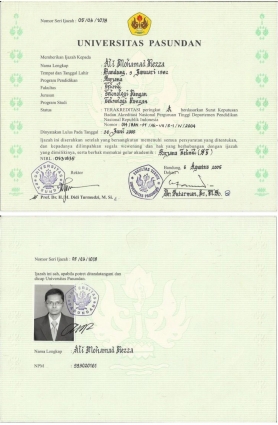 Nomor Seri Ijazah :
UNIVERSITAS PASUNDAN
Memberikan Ijazah Kepada
Nama Lengkap Ali Mohamad Rezza
Tempat dan Tanggal Lahir Bandung, 9 Januari 1982
Program Pendidikan Sarjana
Fakultas Teknik
Jurusan Teknologi Pangan
Program Studi Teknologi Pangan
Status TERAKREDITASI peringkat A berdasarkan Surat Keputusan
Badan Akreditasi Nasional Perguruan Tinggi Departemen Pendidikan
Nasional Republik Indonesia
Nomor
Dinyatakan Lulus Pada Tanggal Juni 2006
Ijazah ini diserahkan setelah yang bersangkutan memenuhi semua persyaratan yang ditentukan,
dan kepadanya dilimpahkan segala wewenang dan hak yang berhubungan dengan ijazah
yang dimilikinya, serta berhak memakai gelar akademik Sarjana Teknik
NIRL
Bandung, Agustus 2006
Rektor
Dekan
Prof. Dr. H. M. Didi Turmudzi, M. Si.
Nomor Seri Ijazah :
Ijazah ini sah apabila potret ditandatangani dan
dicap Universitas Pasundan
Nama Lengkap Ali Mohamad Rezza
NPM